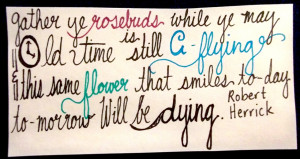 gather ye rosebuds while ye may
Old time is still a-flying
& this same flower that smiles to-day
to-morrow Will be dying.
Robert Herrick